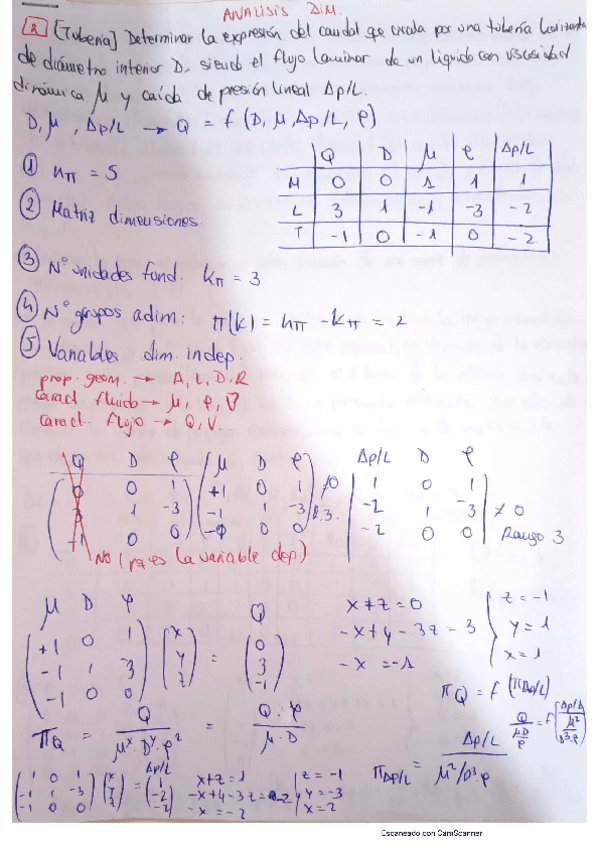 ANALISIS DIM.
R [Tubería] Determinar la expresión del caudal que circula por una tubería horizontal
de diámetro interior D, siendo el flujo laminar de un líquido con viscosidad
dinámica μ y caída de presión lineal Δp/L.
D, μ, Δp/L → Q = f (D, μ, Δp/L, ρ)
① nπ = 5
② Matriz dimensiones.
Q D μ ρ Δp/L
M 0 0 1 1 1
L 3 1 -1 -3 -2
T -1 0 -1 0 -2
③ Nº unidades fund. kπ = 3
④ Nº grupos adim: π(k) = nπ - kπ = 2
⑤ Variables dim. indep.
prop. geom. → A, L, D, R
Caract fluido → μ, ρ, ∇
Caract. flujo → Q, V.
Q D ρ
0 0 1
3 1 -3
-1 0 0
μ D ρ
+1 0 1
-1 1 -3
-0 0 0
≠0
R.3.
Δp/L D ρ
1 0 1
-2 1 -3
-2 0 0
≠ 0
Rango 3
No (pq es la variable dep.)
μ D ρ Q
+1 0 1 x 0
-1 1 -3 y = 3
-1 0 0 z -1
x+z = 0
-x+y-3z = 3
-x = -1
z = -1
y = 1
x = 1
πQ = Q / μˣ·Dʸ·ρᶻ = Q·ρ / μ·D
πQ = f (πΔp/L)
Q / (μD/ρ) = f [Δp/L / (μ²/D³·ρ)]
πΔp/L = Δp/L / μ²/D³·ρ
Δp/L
1 0 1 x 1
-1 1 -3 y = -2
-1 0 0 z -2
x+z = 1
-x+y-3z = -2
-x = -2
z = -1
y = -3
x = 2
Escaneado con CamScanner